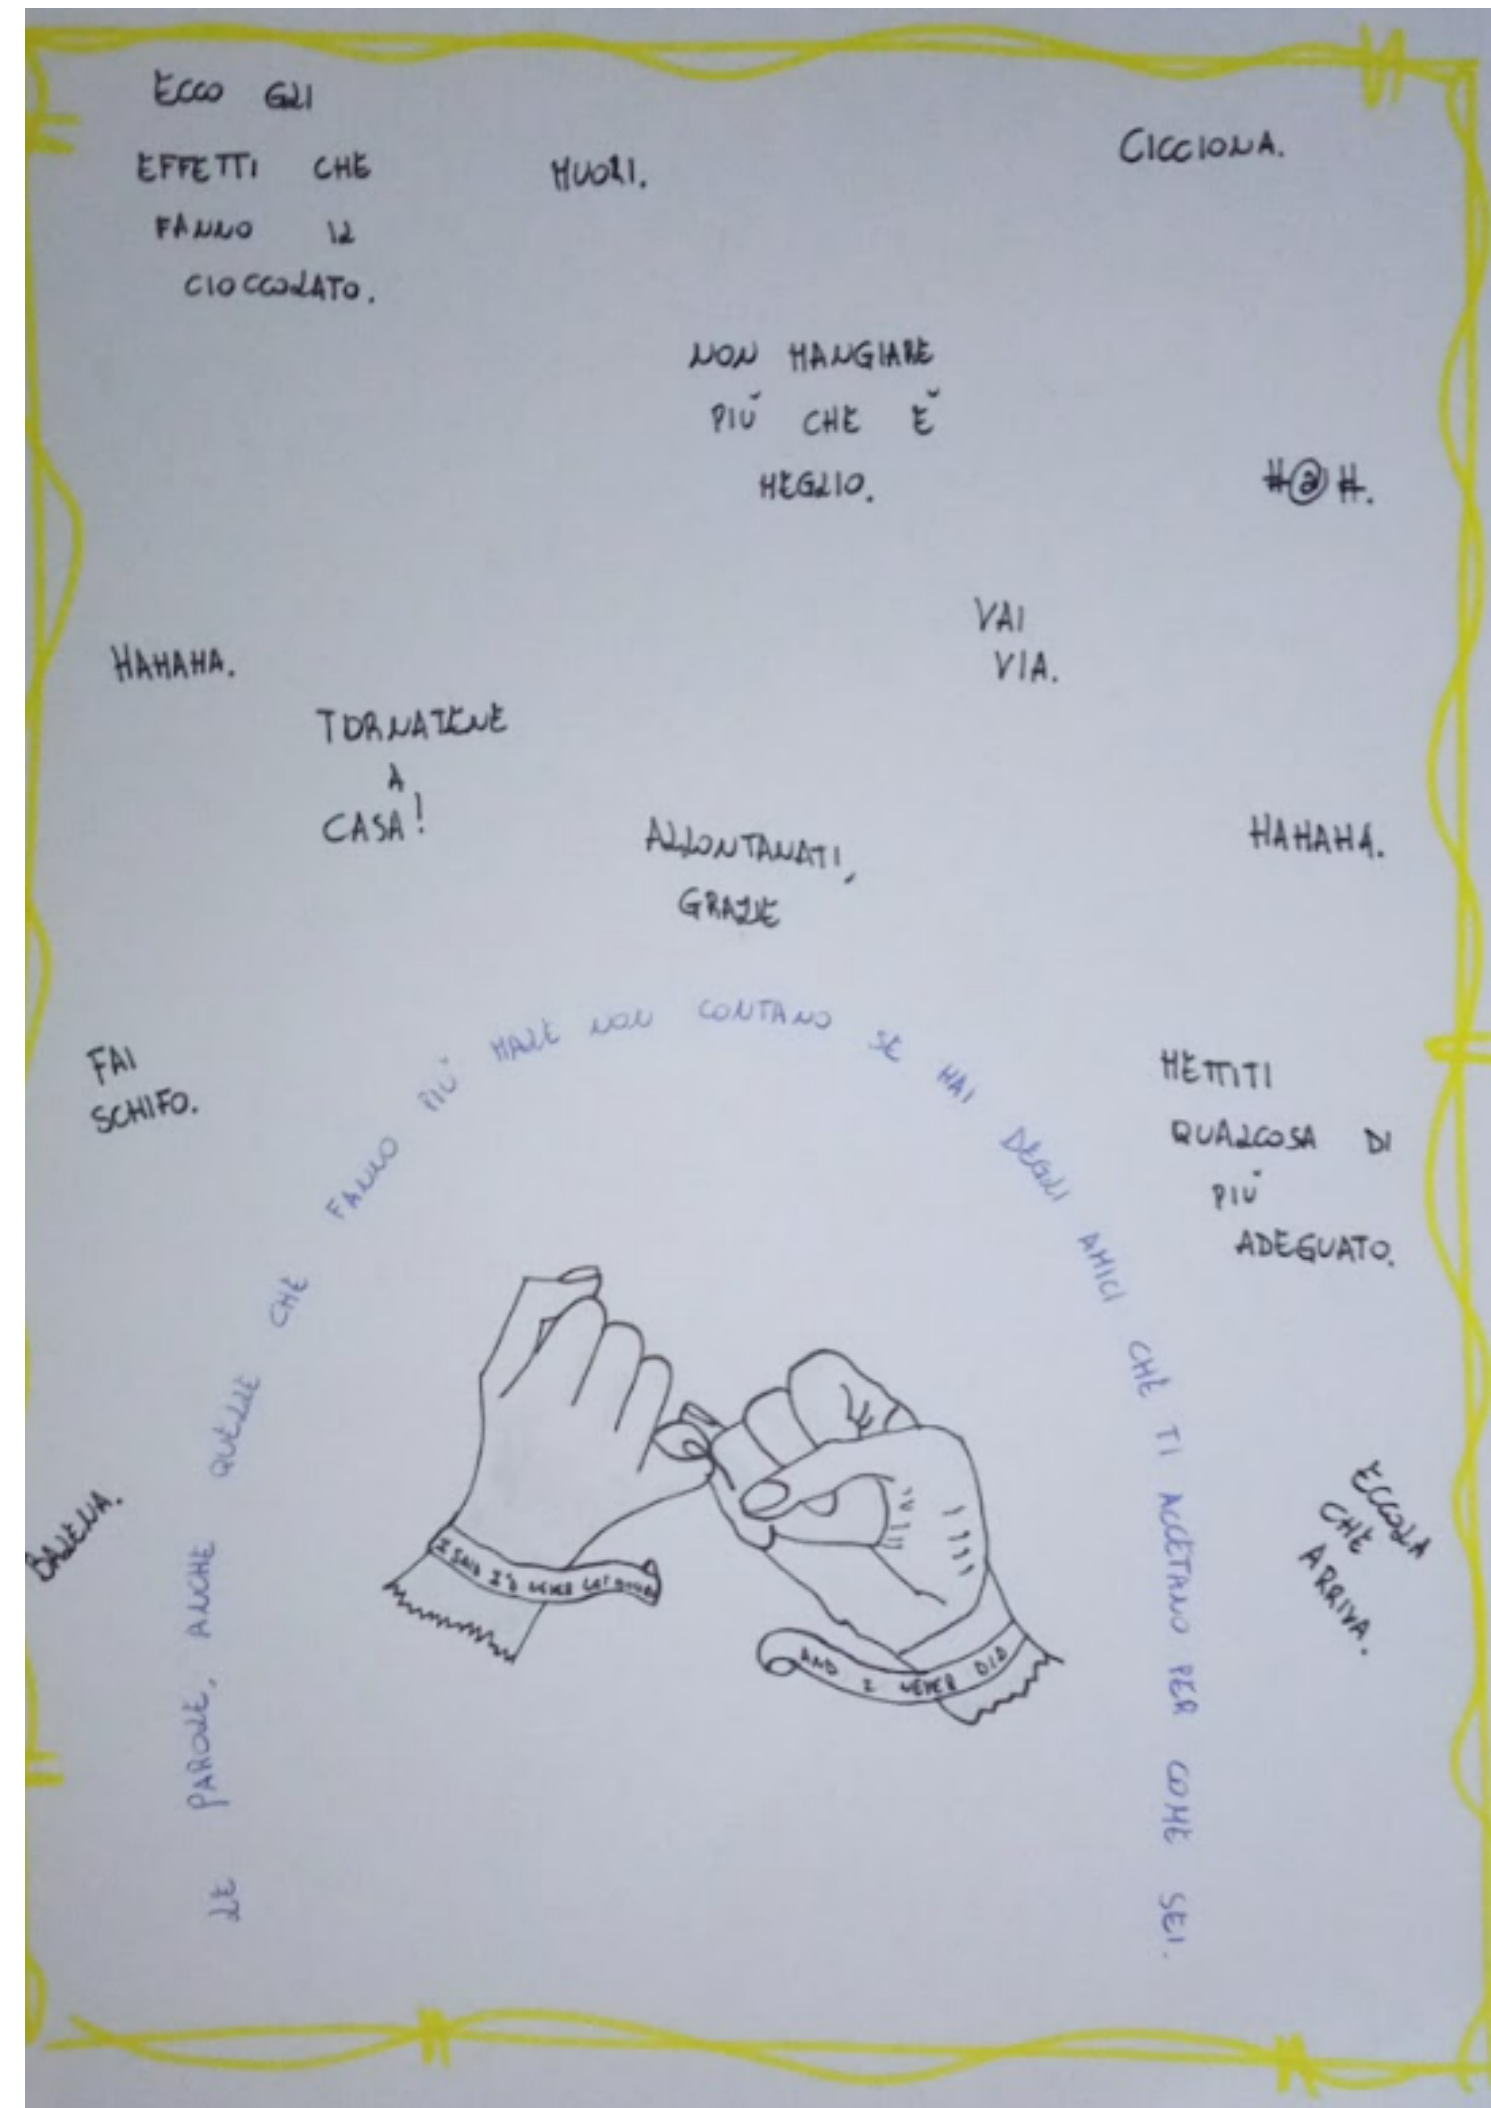 ECCO GLI
EFFETTI CHE
FANNO IL
CIOCCOLATO.
MUORI.
CICCIONA.
NON MANGIARE
PIÙ CHE È
MEGLIO.
#@#.
VAI
VIA.
HAHAHA.
TORNATENE
A
CASA!
ALLONTANATI,
GRAZIE
HAHAHA.
FAI
SCHIFO.
METTITI
QUALCOSA DI
PIÙ
ADEGUATO.
BALENA.
ECCOLA
CHE
ARRIVA.
LE PAROLE, ANCHE QUELLE CHE FANNO PIÙ MALE NON CONTANO SE HAI DEGLI AMICI CHE TI ACCETANO PER COME SEI.
I SAID I'D NEVER LET
AND I NEVER DID